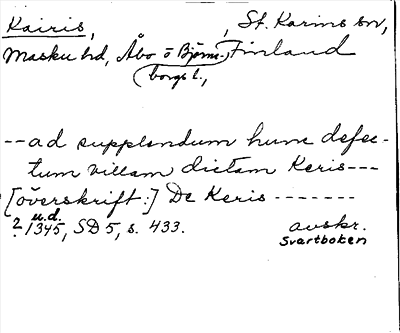 Kairis, , St. Karins sn,
Masku hd, Åbo o Björne-, Finland
borgs l.,
--ad supplendum hunc defec-
tum villam dictam Keris---
[överskrift:] De Keris -------
u.d.
? 1345, SD 5, s. 433. avskr.
Svartboken